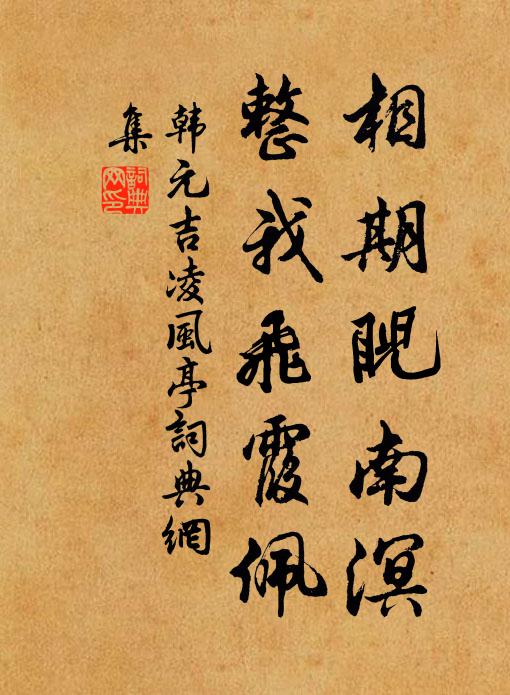 相期睨南溟
整我飛霞佩
韩元吉凌風亭詞典網
集
詞典網印